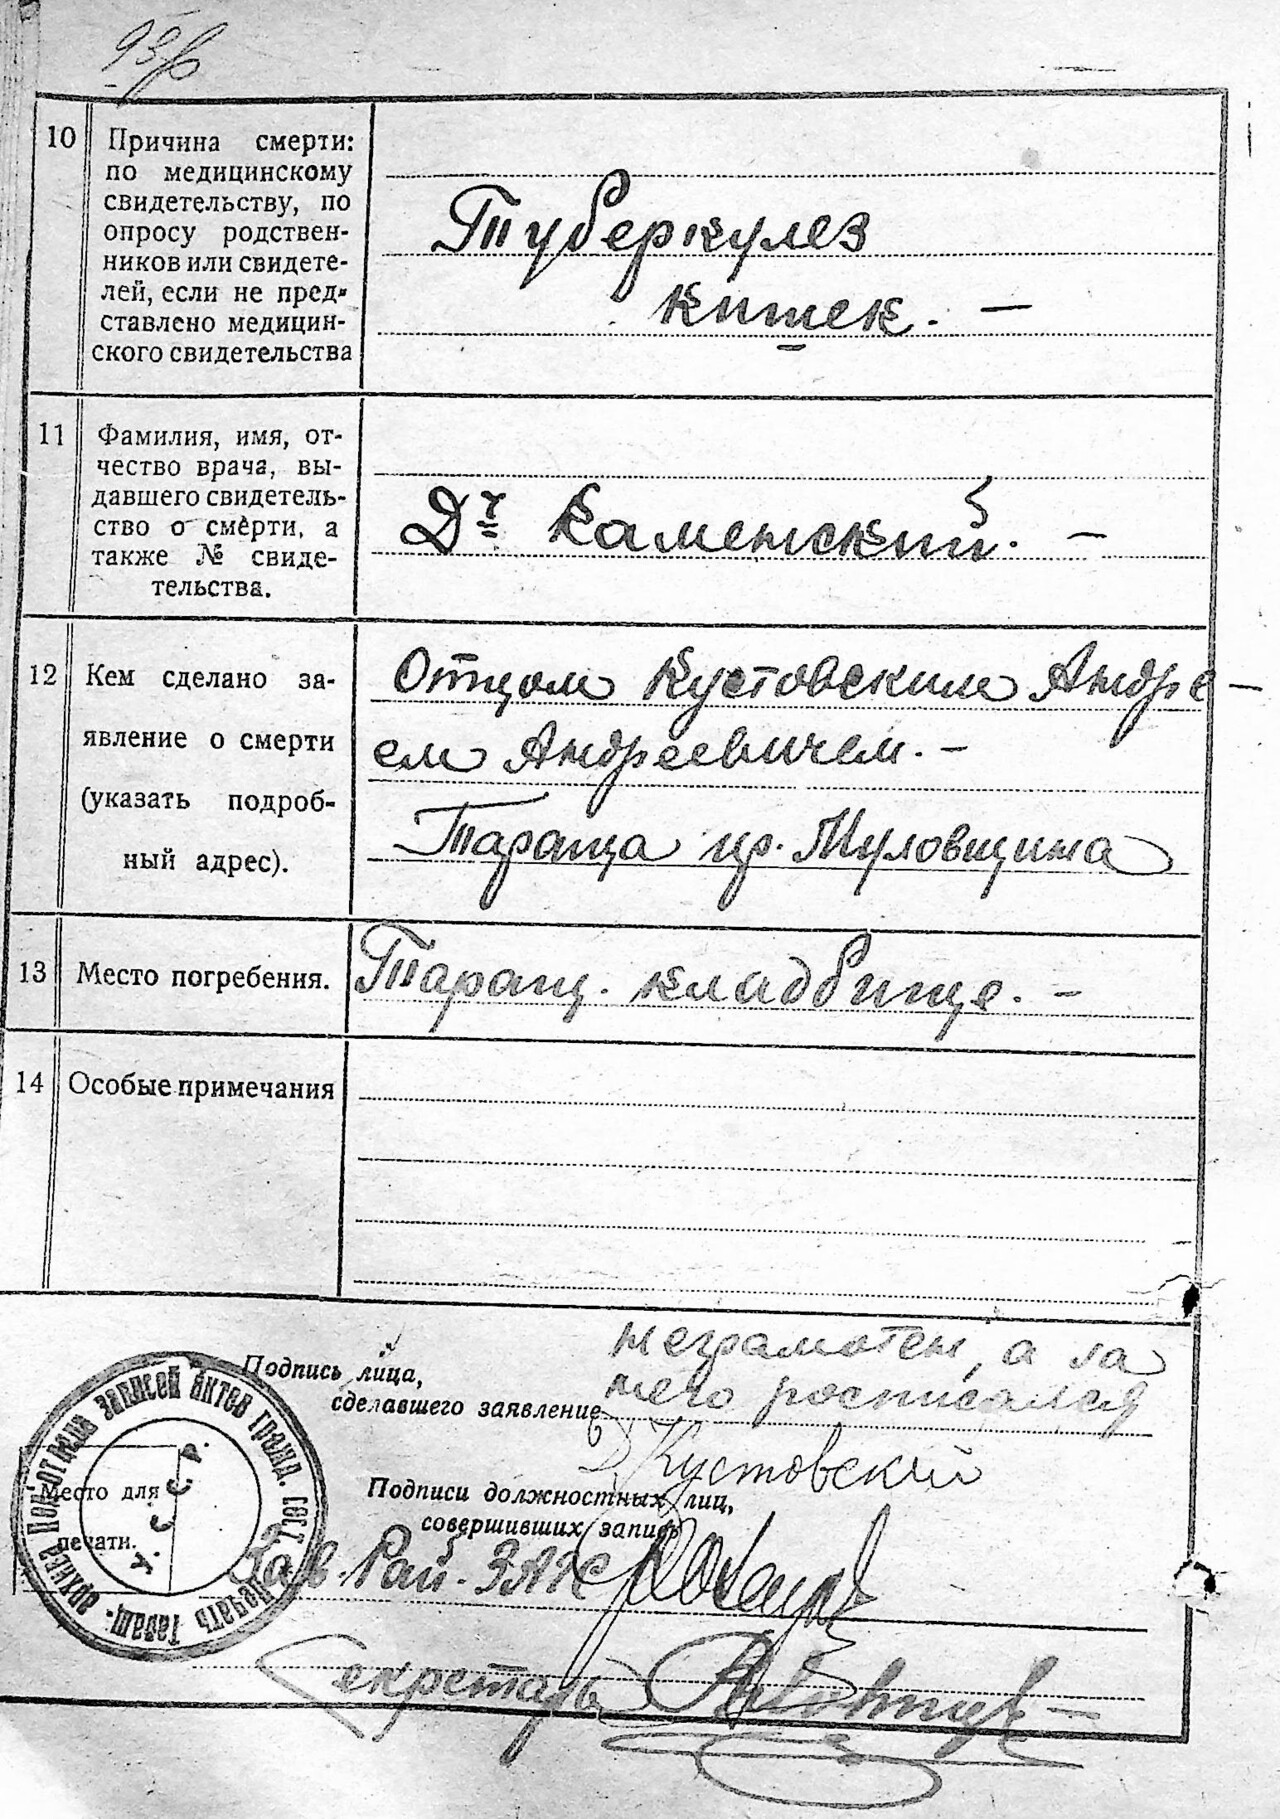 93
10
Причина смерти:
по медицинскому
свидетельству, по
опросу родствен-
ников или свидете-
лей, если не пред-
ставлено медицин-
ского свидетельства
Туберкулез
кишек. —
11
Фамилия, имя, от-
чество врача, вы-
давшего свидетель-
ство о смерти, а
также № свиде-
тельства.
Др Каменский. —
12
Кем сделано за-
явление о смерти
(указать подроб-
ный адрес).
Отцом Кустовским Андре-
ем Андреевичем. —
Тараща Муловщина
13
Место погребения.
Таращ. кладбище. —
14
Особые примечания
Подпись лица,
сделавшего заявление
неграмотен, а за
него росписался
Кустовский
Место для
печати.
Подписи должностных лиц,
совершивших запись
Зав. Рай. ЗАГС
Секретарь
У. С. С. Р.
записей актов гражд. сост.
Печать Таращ.